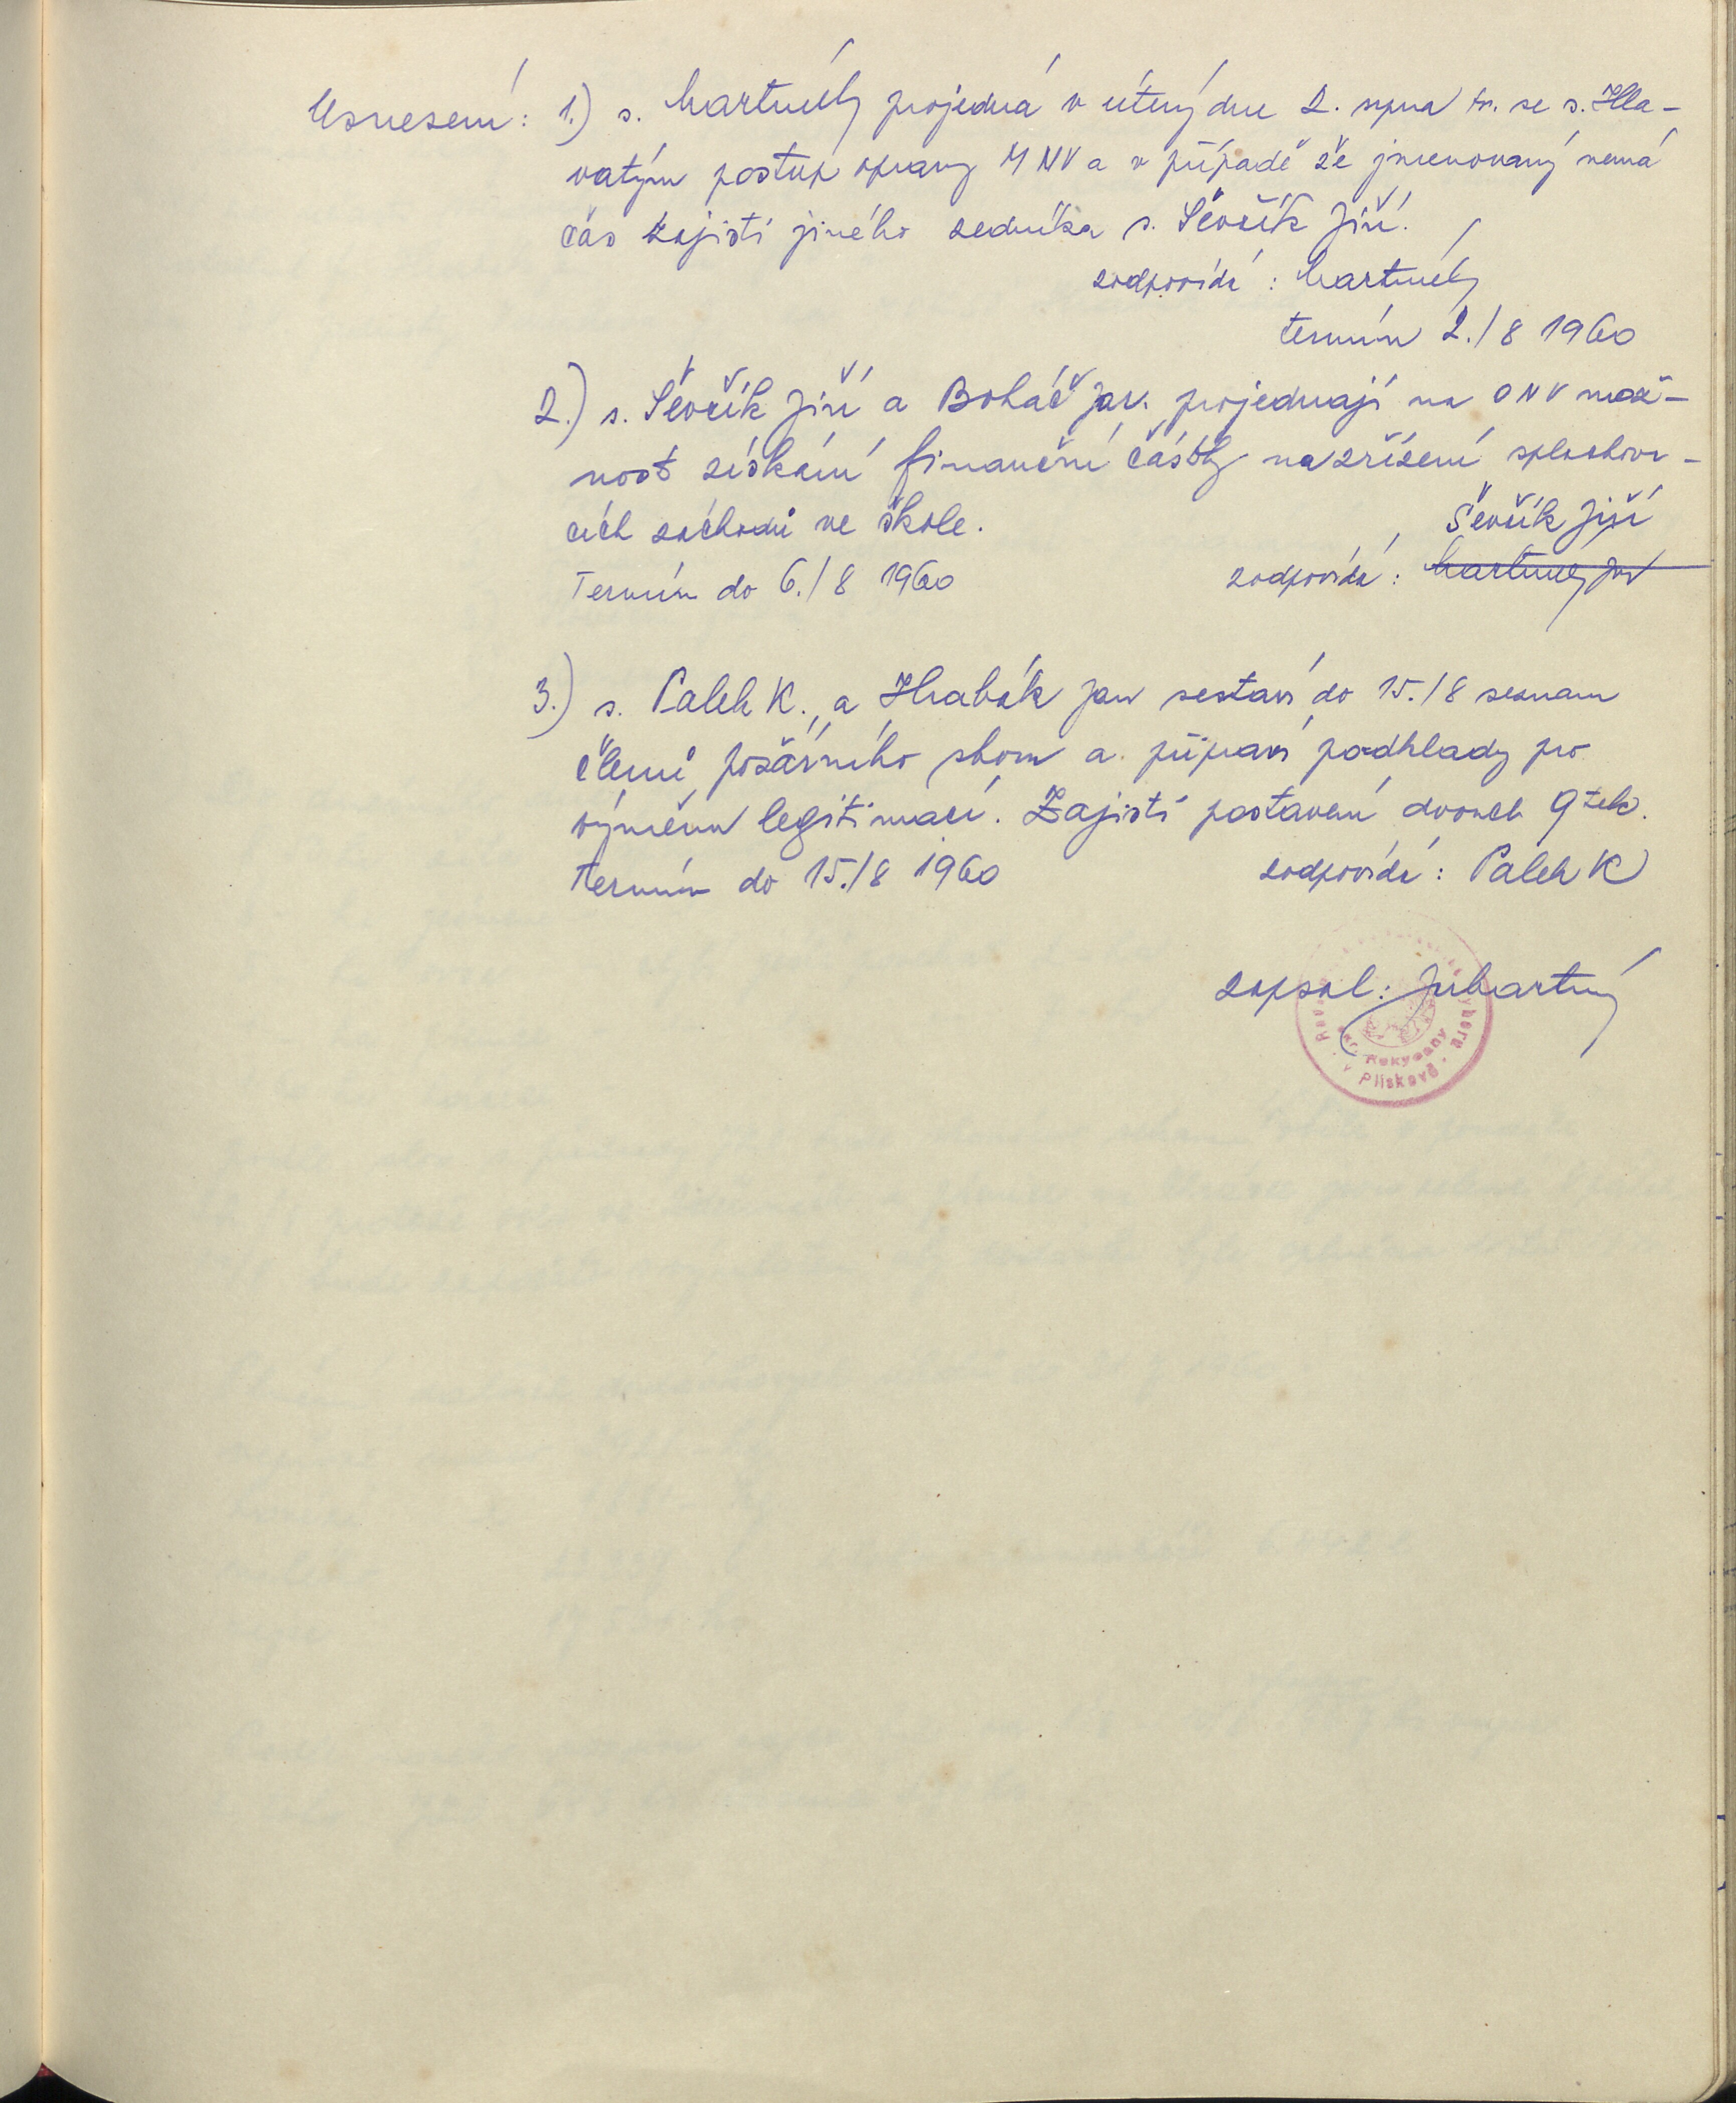 Usnesení: 1.) s. Martínek projedná v úterý dne 2. srpna tr. se s. Hla-
vatým postup opravy MNV a v případě že jmenovaný nemá
čas zajistí jiného zedníka s. Ševčík Jiří.
zodpovídá:
termín 2./8 1960
2.) s. Ševčík Jiří a Boháč Jar. projednají na ONV mož-
nost získání finanční částky na zřízení splachova-
cích záchodů ve škole.
Ševčík Jiří
Termín do 6./8 1960 zodpovídá:
3.) s. Palek K. a Hrabák Jan sestaví do 15./8 seznam
členů požárního sboru a připraví podklady pro
výměnu legitimací. Zajistí postavení dvouch 9tek.
termín do 15./8 1960 zodpovídá: Palek K
zapsal:
v Plískově